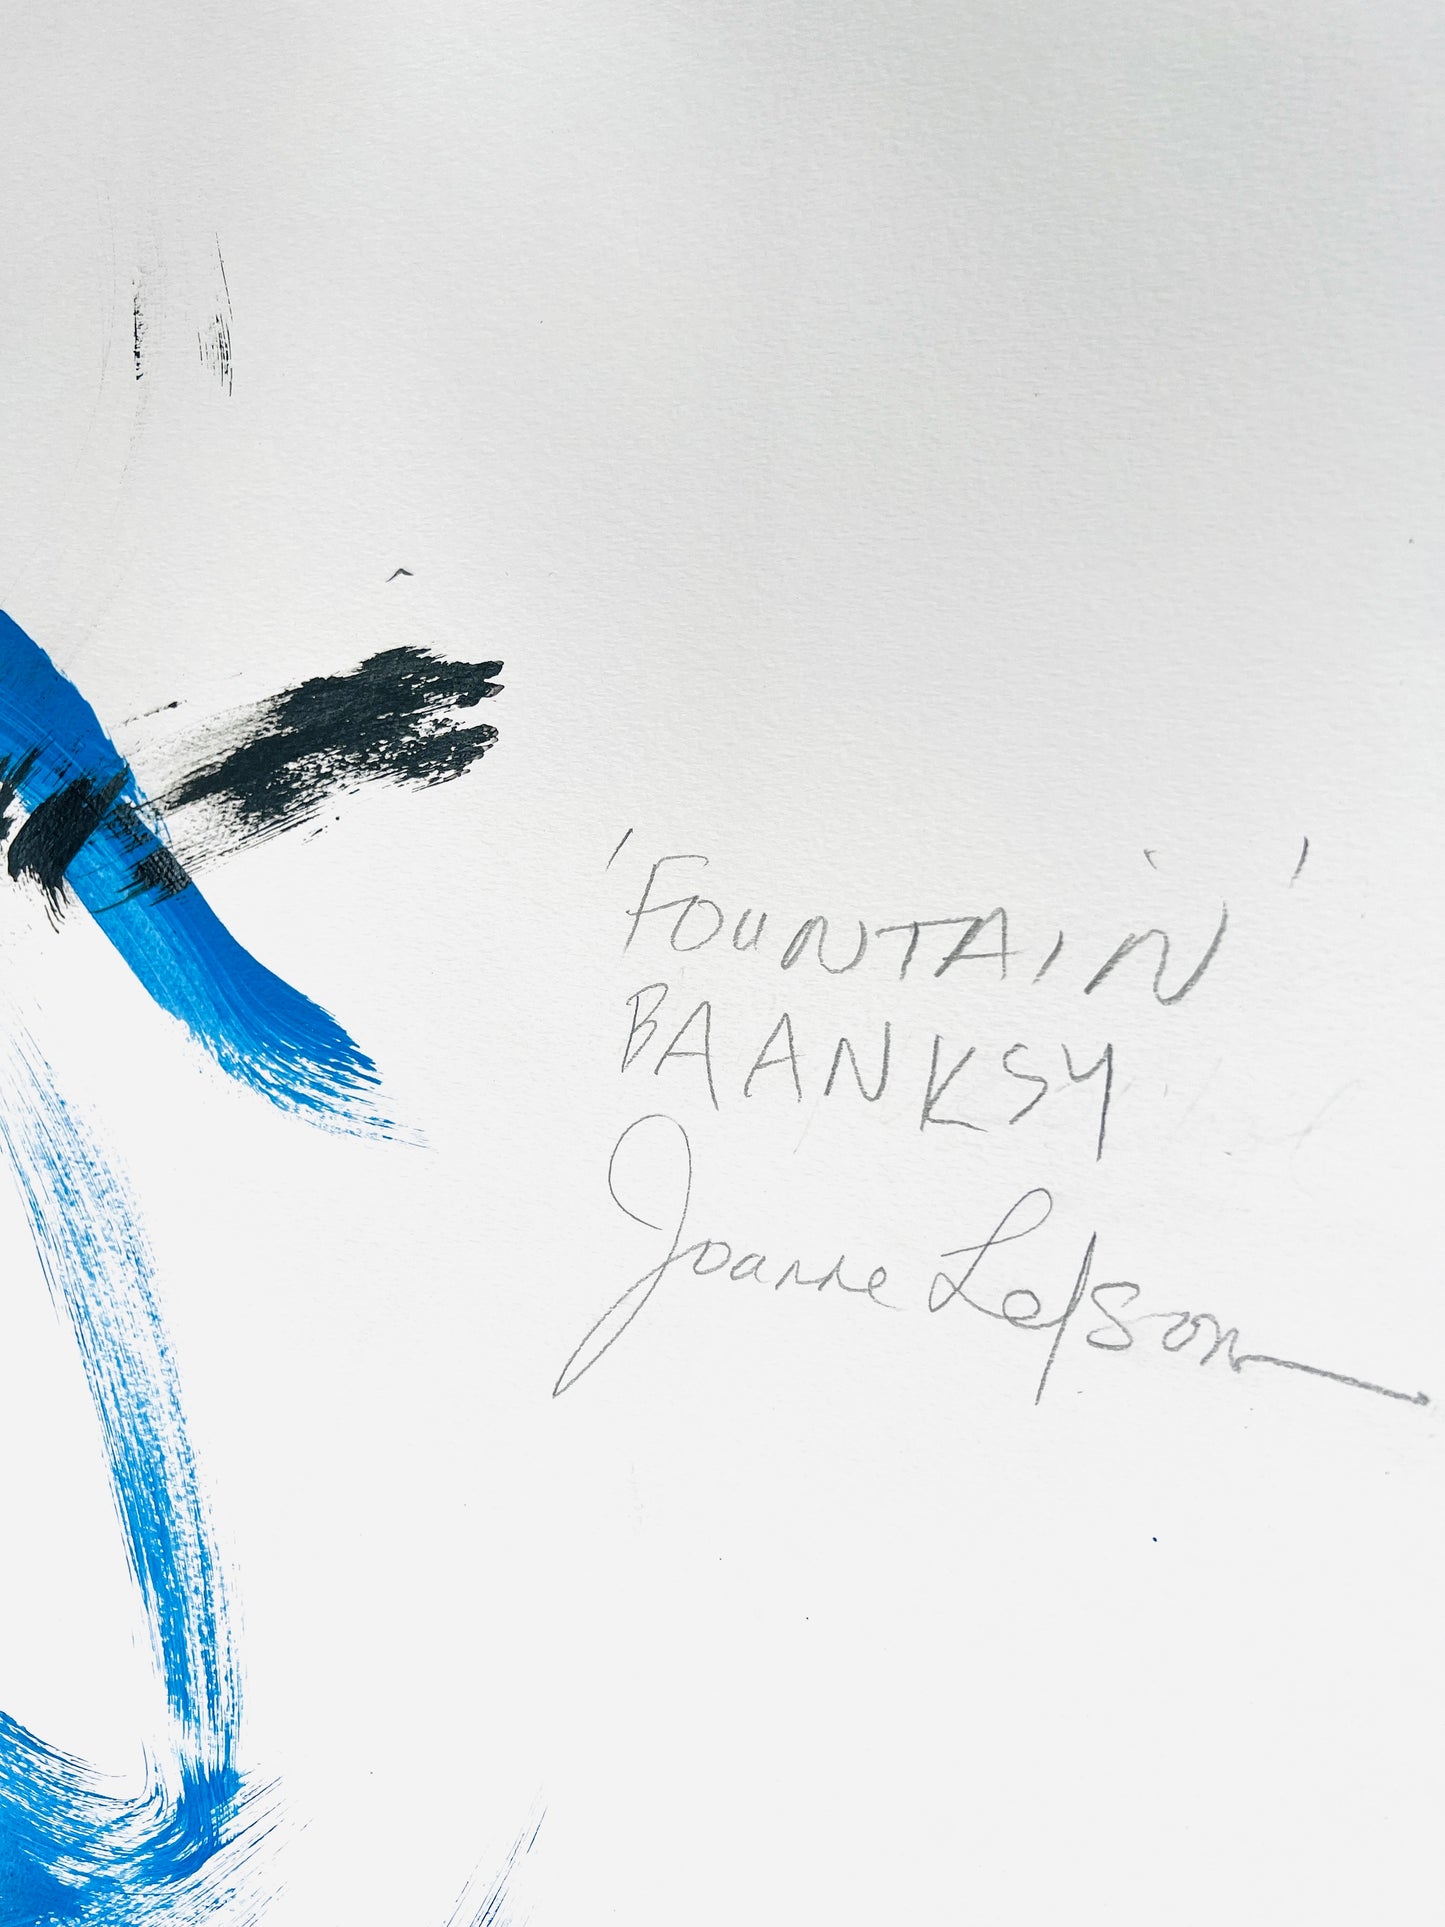 'FOUNTAIN'
BAANKSY
Joanne Lefson